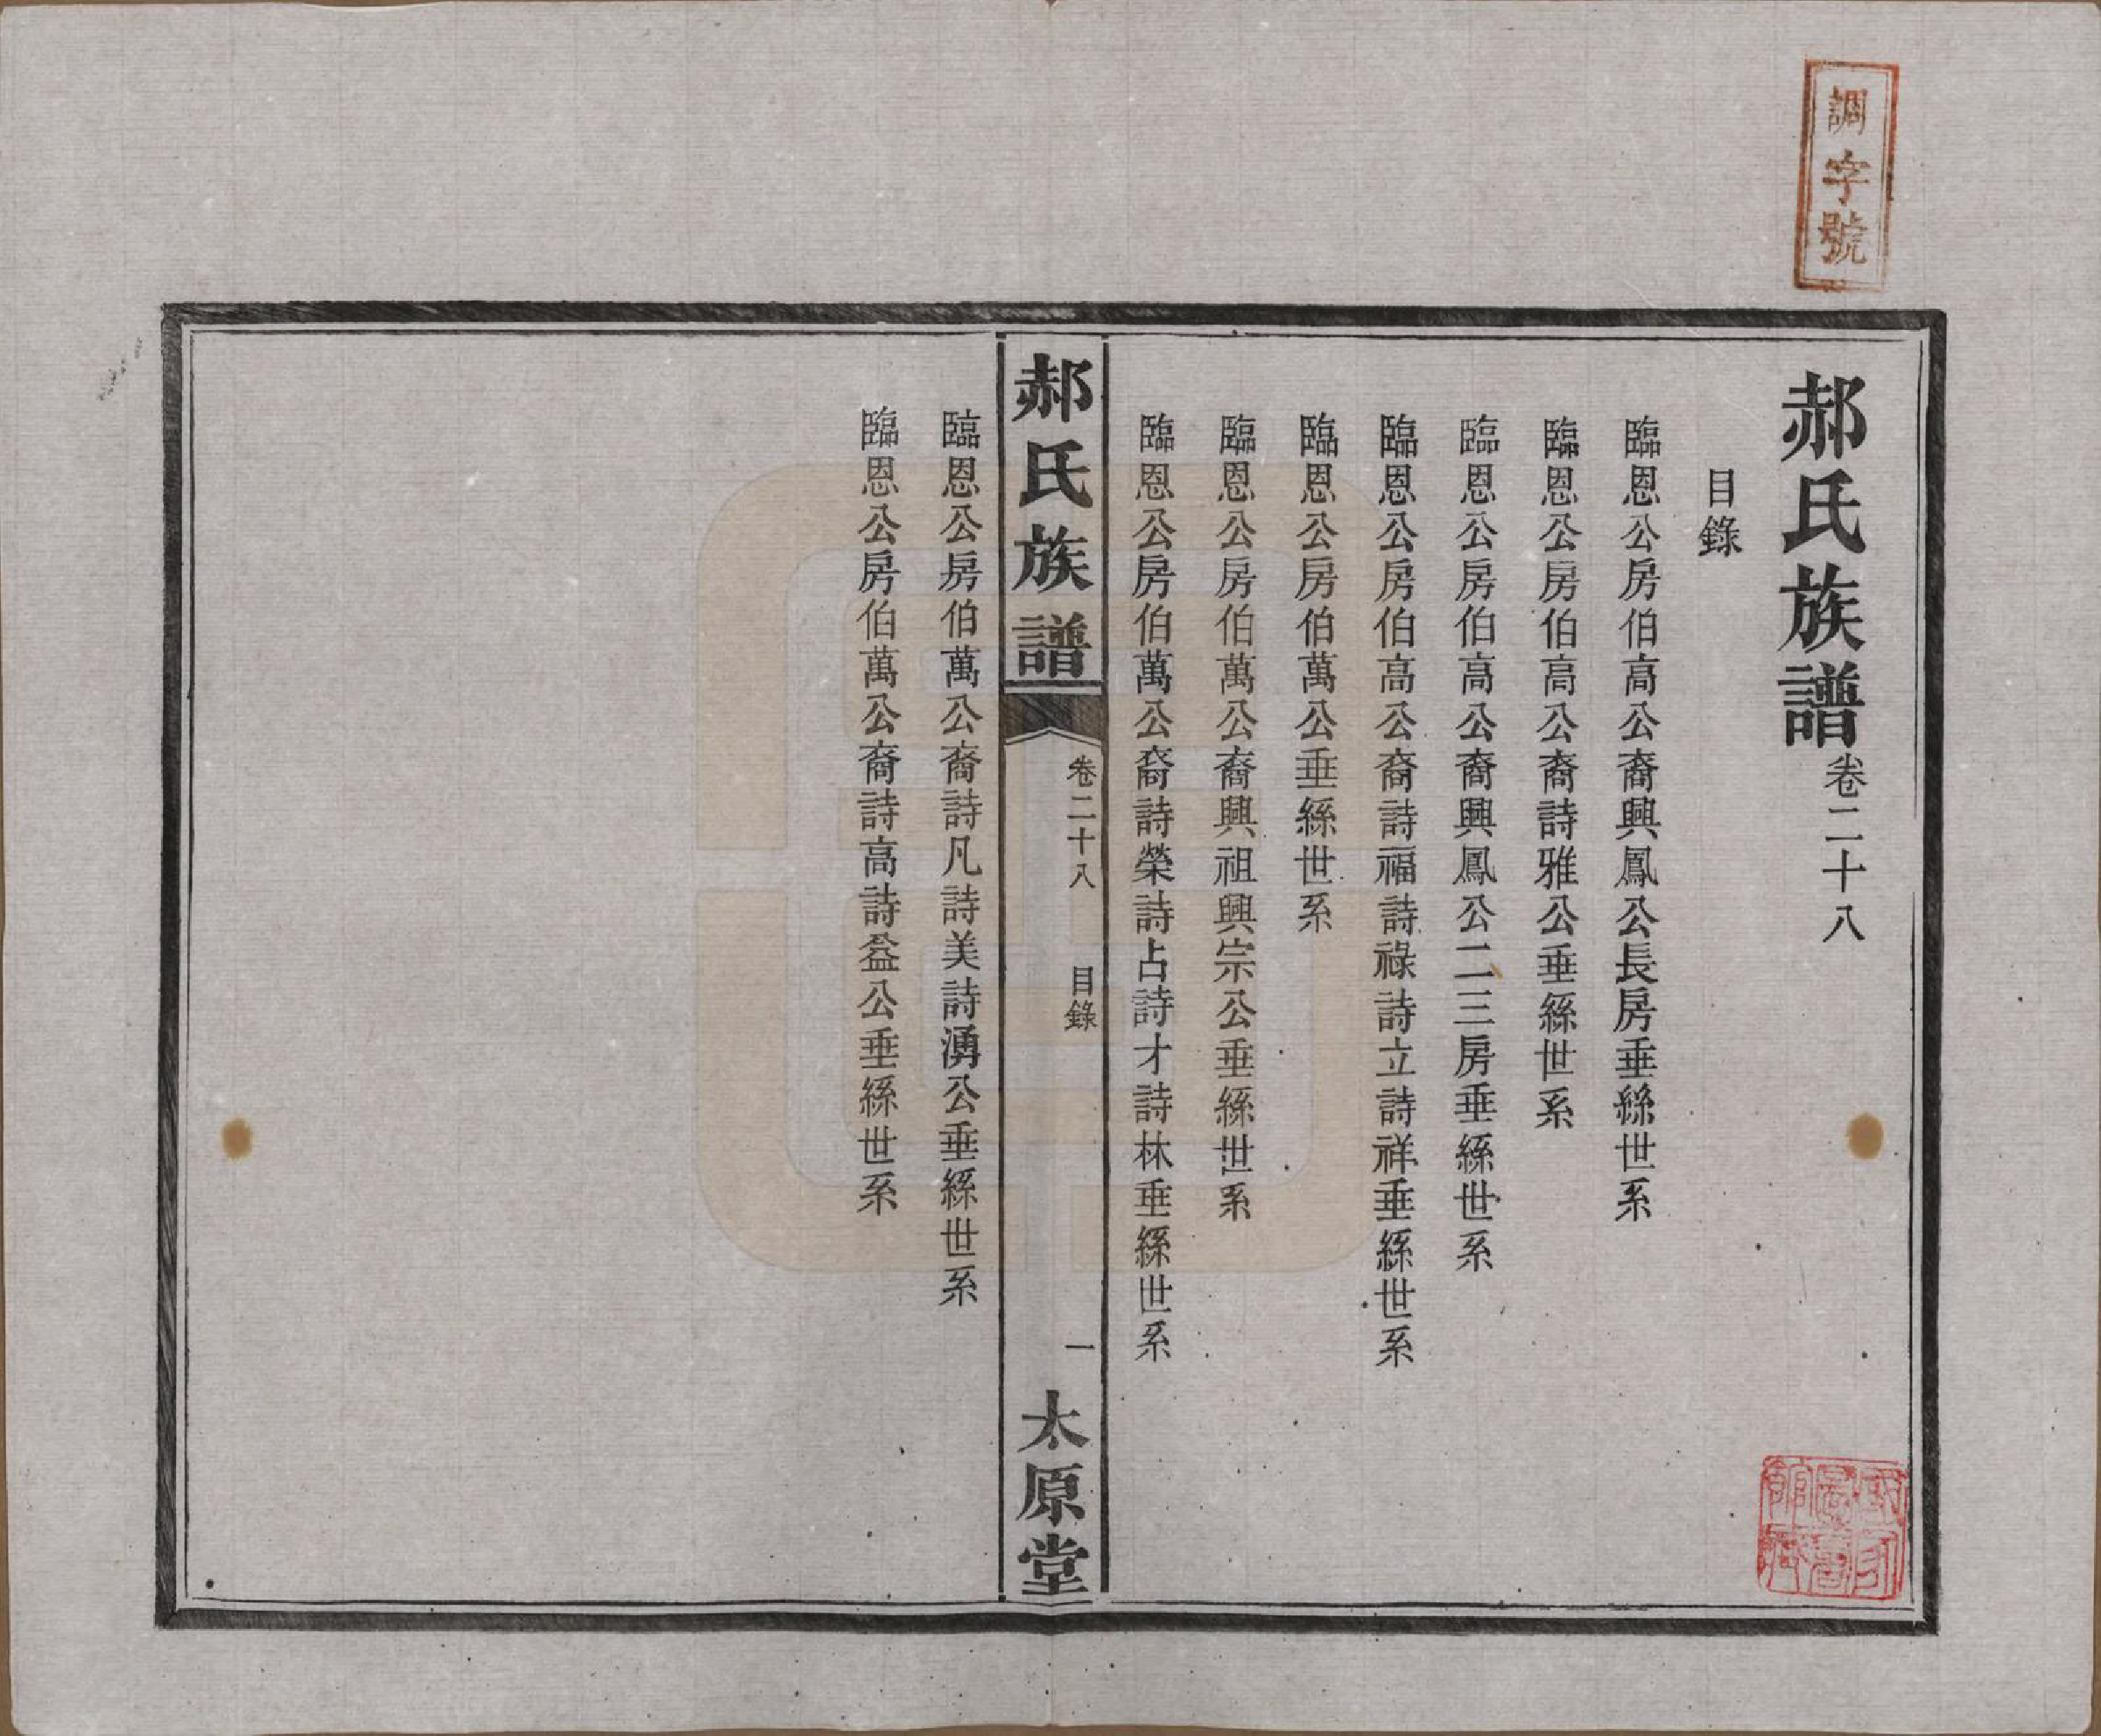 調字號
郝氏族譜卷二十八
目錄
臨恩公房伯高公裔興鳳公長房垂絲世系
臨恩公房伯高公裔詩雅公垂絲世系
臨恩公房伯高公裔興鳳公二三房垂絲世系
臨恩公房伯高公裔詩福詩祿詩立詩祥垂絲世系
臨恩公房伯萬公垂絲世系
臨恩公房伯萬公裔興祖興宗公垂絲世系
臨恩公房伯萬公裔詩榮詩占詩才詩林垂絲世系
郝氏族譜
卷二十八
目錄
一
太原堂
臨恩公房伯萬公裔詩凡詩美詩湧公垂絲世系
臨恩公房伯萬公裔詩高詩益公垂絲世系